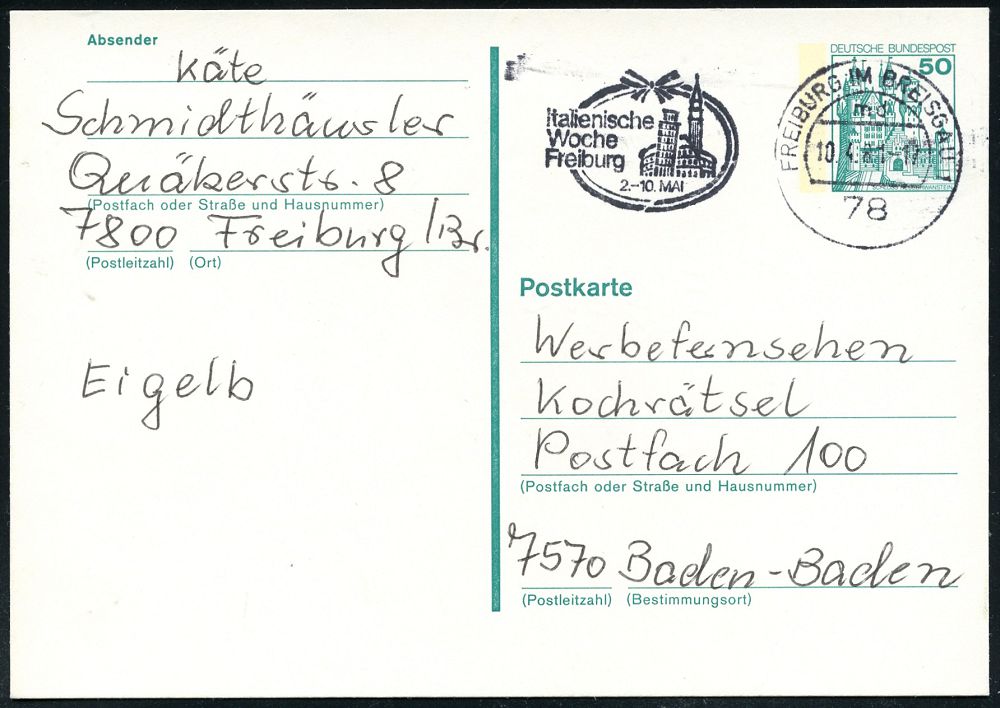 Absender
Käte
Schmidthäusler
Quäkerstr. 8
(Postfach oder Straße und Hausnummer)
7800 Freiburg/Br.
(Postleitzahl) (Ort)
Eigelb
Italienische
Woche
Freiburg
2.-10. MAI
DEUTSCHE BUNDESPOST
50
FREIBURG IM BREISGAU
10.4.
78
Postkarte
Werbefernsehen
Kochrätsel
Postfach 100
(Postfach oder Straße und Hausnummer)
7570 Baden-Baden
(Postleitzahl) (Bestimmungsort)